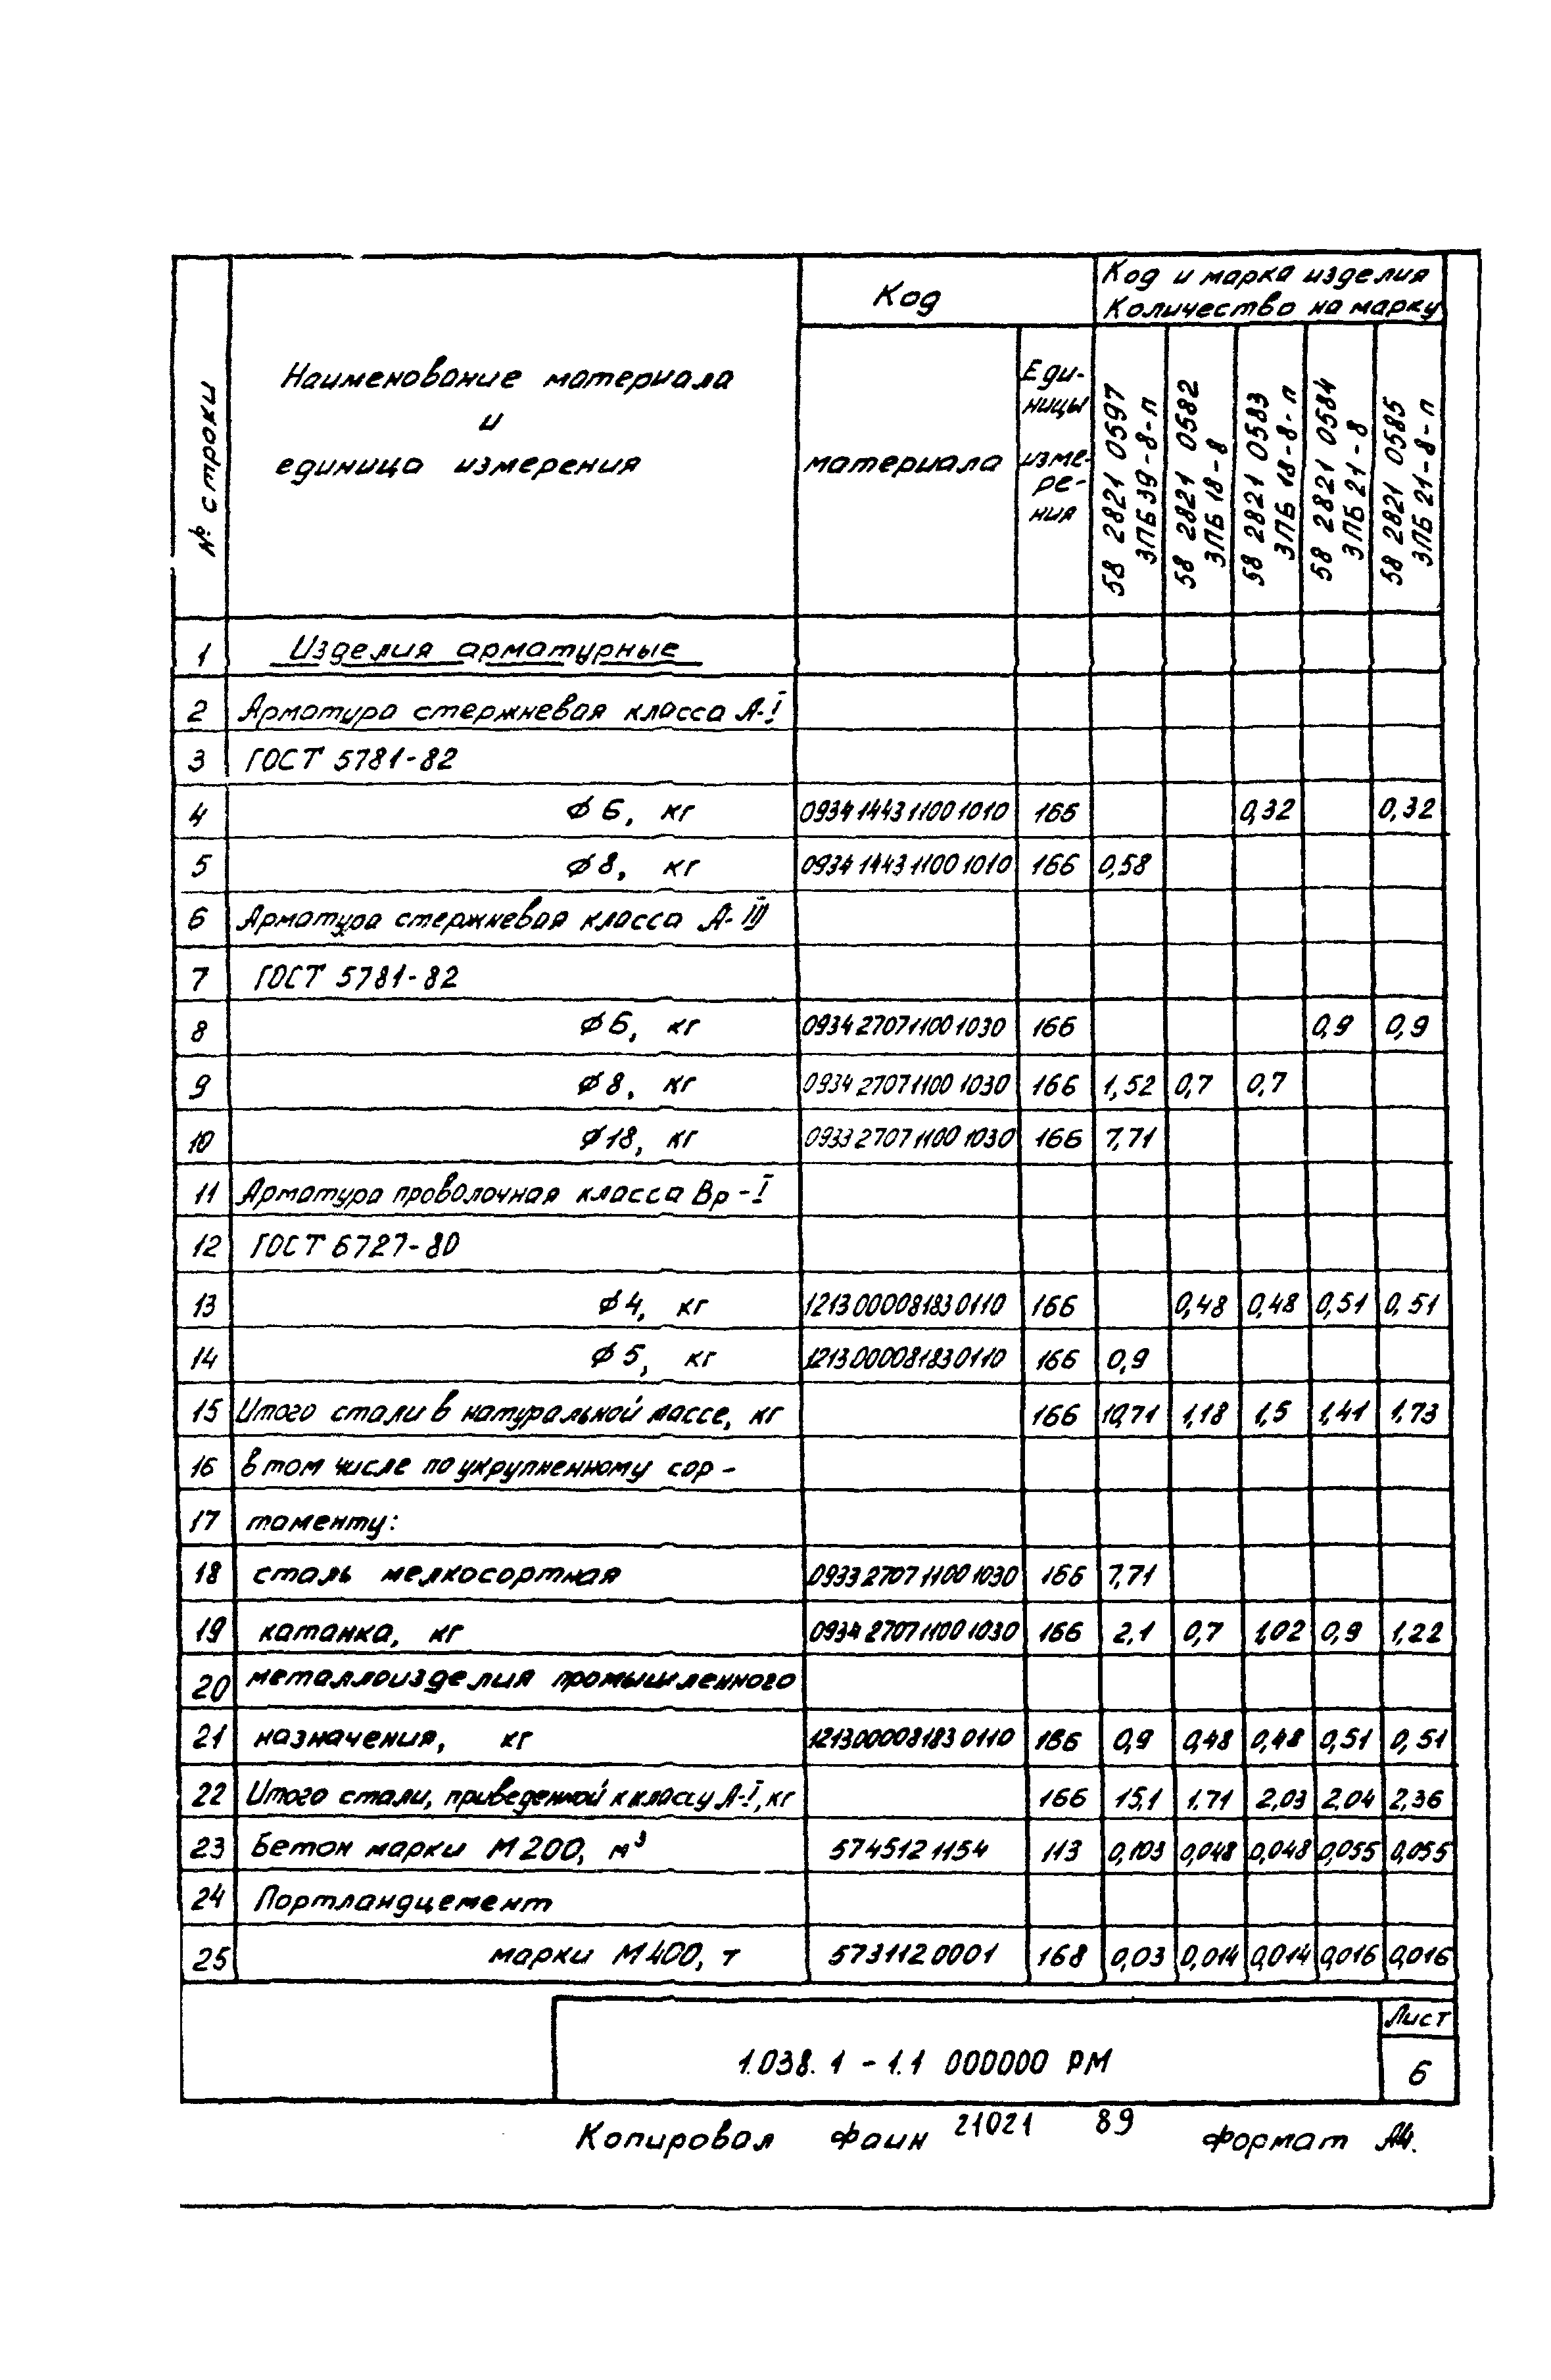 № строки
Наименование материала
и
единица измерения
Код
материала
Еди-
ницы
изме-
ре-
ния
Код и марка изделия
Количество на марку
58 2821 0597
3ПБ 39-8-п
58 2821 0582
3ПБ 18-8
58 2821 0583
3ПБ 18-8-п
58 2821 0584
3ПБ 21-8
58 2821 0585
3ПБ 21-8-п
1 Изделия арматурные
2 Арматура стержневая класса А-I
3 ГОСТ 5781-82
4 ϕ 6, кг 0934 1443 1100 1010 166 0,32 0,32
5 ϕ 8, кг 0934 1443 1100 1010 166 0,58
6 Арматура стержневая класса А-III
7 ГОСТ 5781-82
8 ϕ 6, кг 0934 2707 1100 1030 166 0,9 0,9
9 ϕ 8, кг 0934 2707 1100 1030 166 1,52 0,7 0,7
10 ϕ 18, кг 0933 2707 1100 1030 166 7,71
11 Арматура проволочная класса Вр-I
12 ГОСТ 6727-80
13 ϕ 4, кг 1213 0000 8183 0110 166 0,48 0,48 0,51 0,51
14 ϕ 5, кг 1213 0000 8183 0110 166 0,9
15 Итого стали в натуральной массе, кг 166 10,71 1,18 1,5 1,41 1,73
16 в том числе по укрупненному сор-
17 таменту:
18 сталь мелкосортная 0933 2707 1100 1030 166 7,71
19 катанка, кг 0934 2707 1100 1030 166 2,1 0,7 1,02 0,9 1,22
20 металлоизделия промышленного
21 назначения, кг 1213 0000 8183 0110 166 0,9 0,48 0,48 0,51 0,51
22 Итого стали, приведенной к классу А-I, кг 166 15,1 1.71 2,03 2.04 2,36
23 Бетон марки М200, м³ 574512 1154 113 0,103 0,048 0,048 0,055 0,055
24 Портландцемент
25 марки М400, т 573112 0001 168 0,03 0,014 0,014 0,016 0,016
1.038.1-1.1 000000 РМ
Лист
6
Копировал Фаин 21021 89 Формат А4.